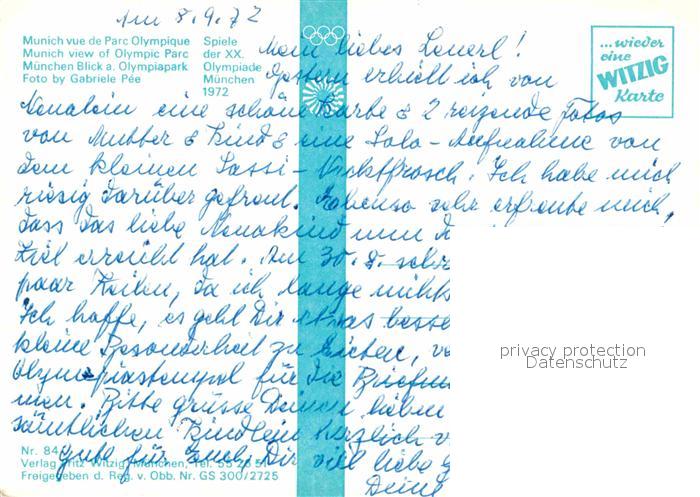 Am 8.9.72
Munich vue de Parc Olympique
Munich view of Olympic Parc
München Blick a. Olympiapark
Foto by Gabriele Pée
Spiele
der XX.
Olympiade
München
1972
...wieder
eine
WITZIG
Karte
Mein liebes Loverl!
Gestern erhielt ich von
eine schöne Karte & 2 reizende Fotos
von Mutter & Kind & eine Solo-Aufnahme von
dem kleinen Sassi-Nacktfrosch. Ich habe mich
riesig darüber gefreut. Ebenso sehr erfreute mich,
dass das liebe nun
Ziel erreicht hat. Am 30.8. schr
paar Zeilen, da ich lange nichts
Ich hoffe, es geht Dir etwas besse
kleine Besonderheit zu bieten, vo
Olympiastempel für die Briefm
men. Bitte grüsse Deinen lieben
sämtlichen Kindlein herzlich v
gute für Euch, Dir viel liebe G
Deine
privacy protection
Datenschutz
Nr. 84
Verlag Fritz Witzig, München, Tel. 55 26 51
Freigegeben d. Reg. v. Obb. Nr. GS 300/2725